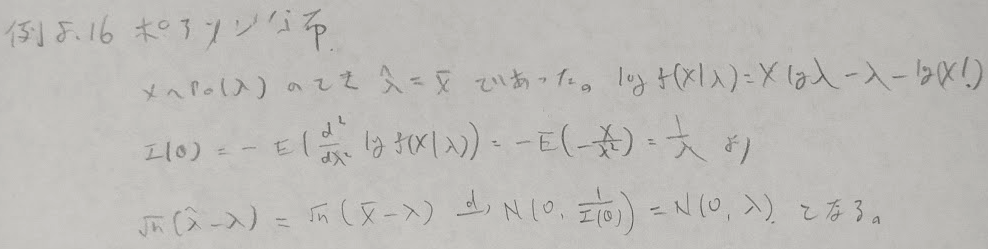 例 8.16 ポアソン分布
X~Po(λ) のとき λ̂ = X̄ であった。 log f(X|λ) = X log λ - λ - log(X!)
I(θ) = - E(d²/dλ² log f(X|λ)) = - E(-X/λ²) = 1/λ より
√n(λ̂-λ) = √n(X̄-λ) →d N(0, 1/I(θ)) = N(0, λ) となる。